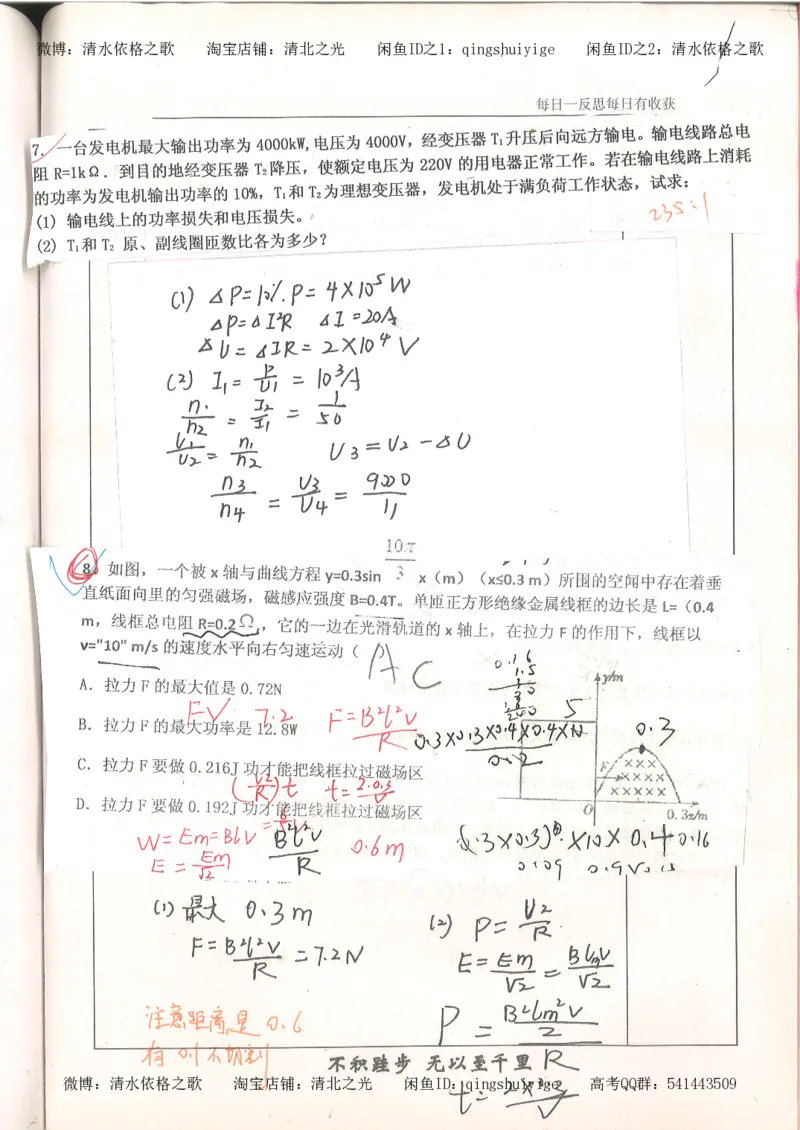 微博：清水依格之歌 淘宝店铺：清北之光 闲鱼ID之1：qingshuiyige 闲鱼ID之2：清水依格之歌
每日一反思每日有收获
7. 一台发电机最大输出功率为 4000kW,电压为 4000V，经变压器 T₁升压后向远方输电。输电线路总电
阻 R=1kΩ．到目的地经变压器 T₂降压，使额定电压为 220V 的用电器正常工作。若在输电线路上消耗
的功率为发电机输出功率的 10%，T₁和 T₂为理想变压器，发电机处于满负荷工作状态，试求：
235:1
(1) 输电线上的功率损失和电压损失。
(2) T₁和 T₂ 原、副线圈匝数比各为多少？
(1) △P=10%.P=4×10⁵W
△P=△I²R △I=20A
△U=△IR=2×10⁴V
(2) I₁=P/U₁=10³A
n₁/n₂=I₂/I₁=1/50
U₁/U₂=n₁/n₂ U₃=U₂-△U
n₃/n₄=U₃/U₄=9000/11
8．如图，一个被 x 轴与曲线方程 y=0.3sin 10π/3 x（m）（x≤0.3 m）所围的空间中存在着垂
直纸面向里的匀强磁场，磁感应强度 B=0.4T。单匝正方形绝缘金属线框的边长是 L=（0.4
m，线框总电阻 R=0.2Ω，它的一边在光滑轨道的 x 轴上，在拉力 F 的作用下，线框以
v="10" m/s 的速度水平向右匀速运动（ AC
A．拉力 F 的最大值是 0.72N
FV 7.2 F=B²l²V/R
B．拉力 F 的最大功率是 12.8W
0.3×0.3×0.4×0.4×10/0.2
5
y/m
0.3
F
O
0.3x/m
C．拉力 F 要做 0.216J 功才能把线框拉过磁场区
(V²/R)t t=2·0.3/V
D．拉力 F 要做 0.192J 功才能把线框拉过磁场区
W=Em=BlV
B²l²V/R
0.6m
E=Em/√2
(0.3×0.3)×10×0.4 0.16
0.09
(1) 最大 0.3m
F=B²l²V/R=7.2N
(2) P=U²/R
E=Em/√2=BlmV/√2
P=B²lm²V/2/R
注意距离是 0.6
有 0.1 不切割
不积跬步 无以至千里
微博：清水依格之歌 淘宝店铺：清北之光 闲鱼ID：qingshuiyige 高考QQ群：541443509